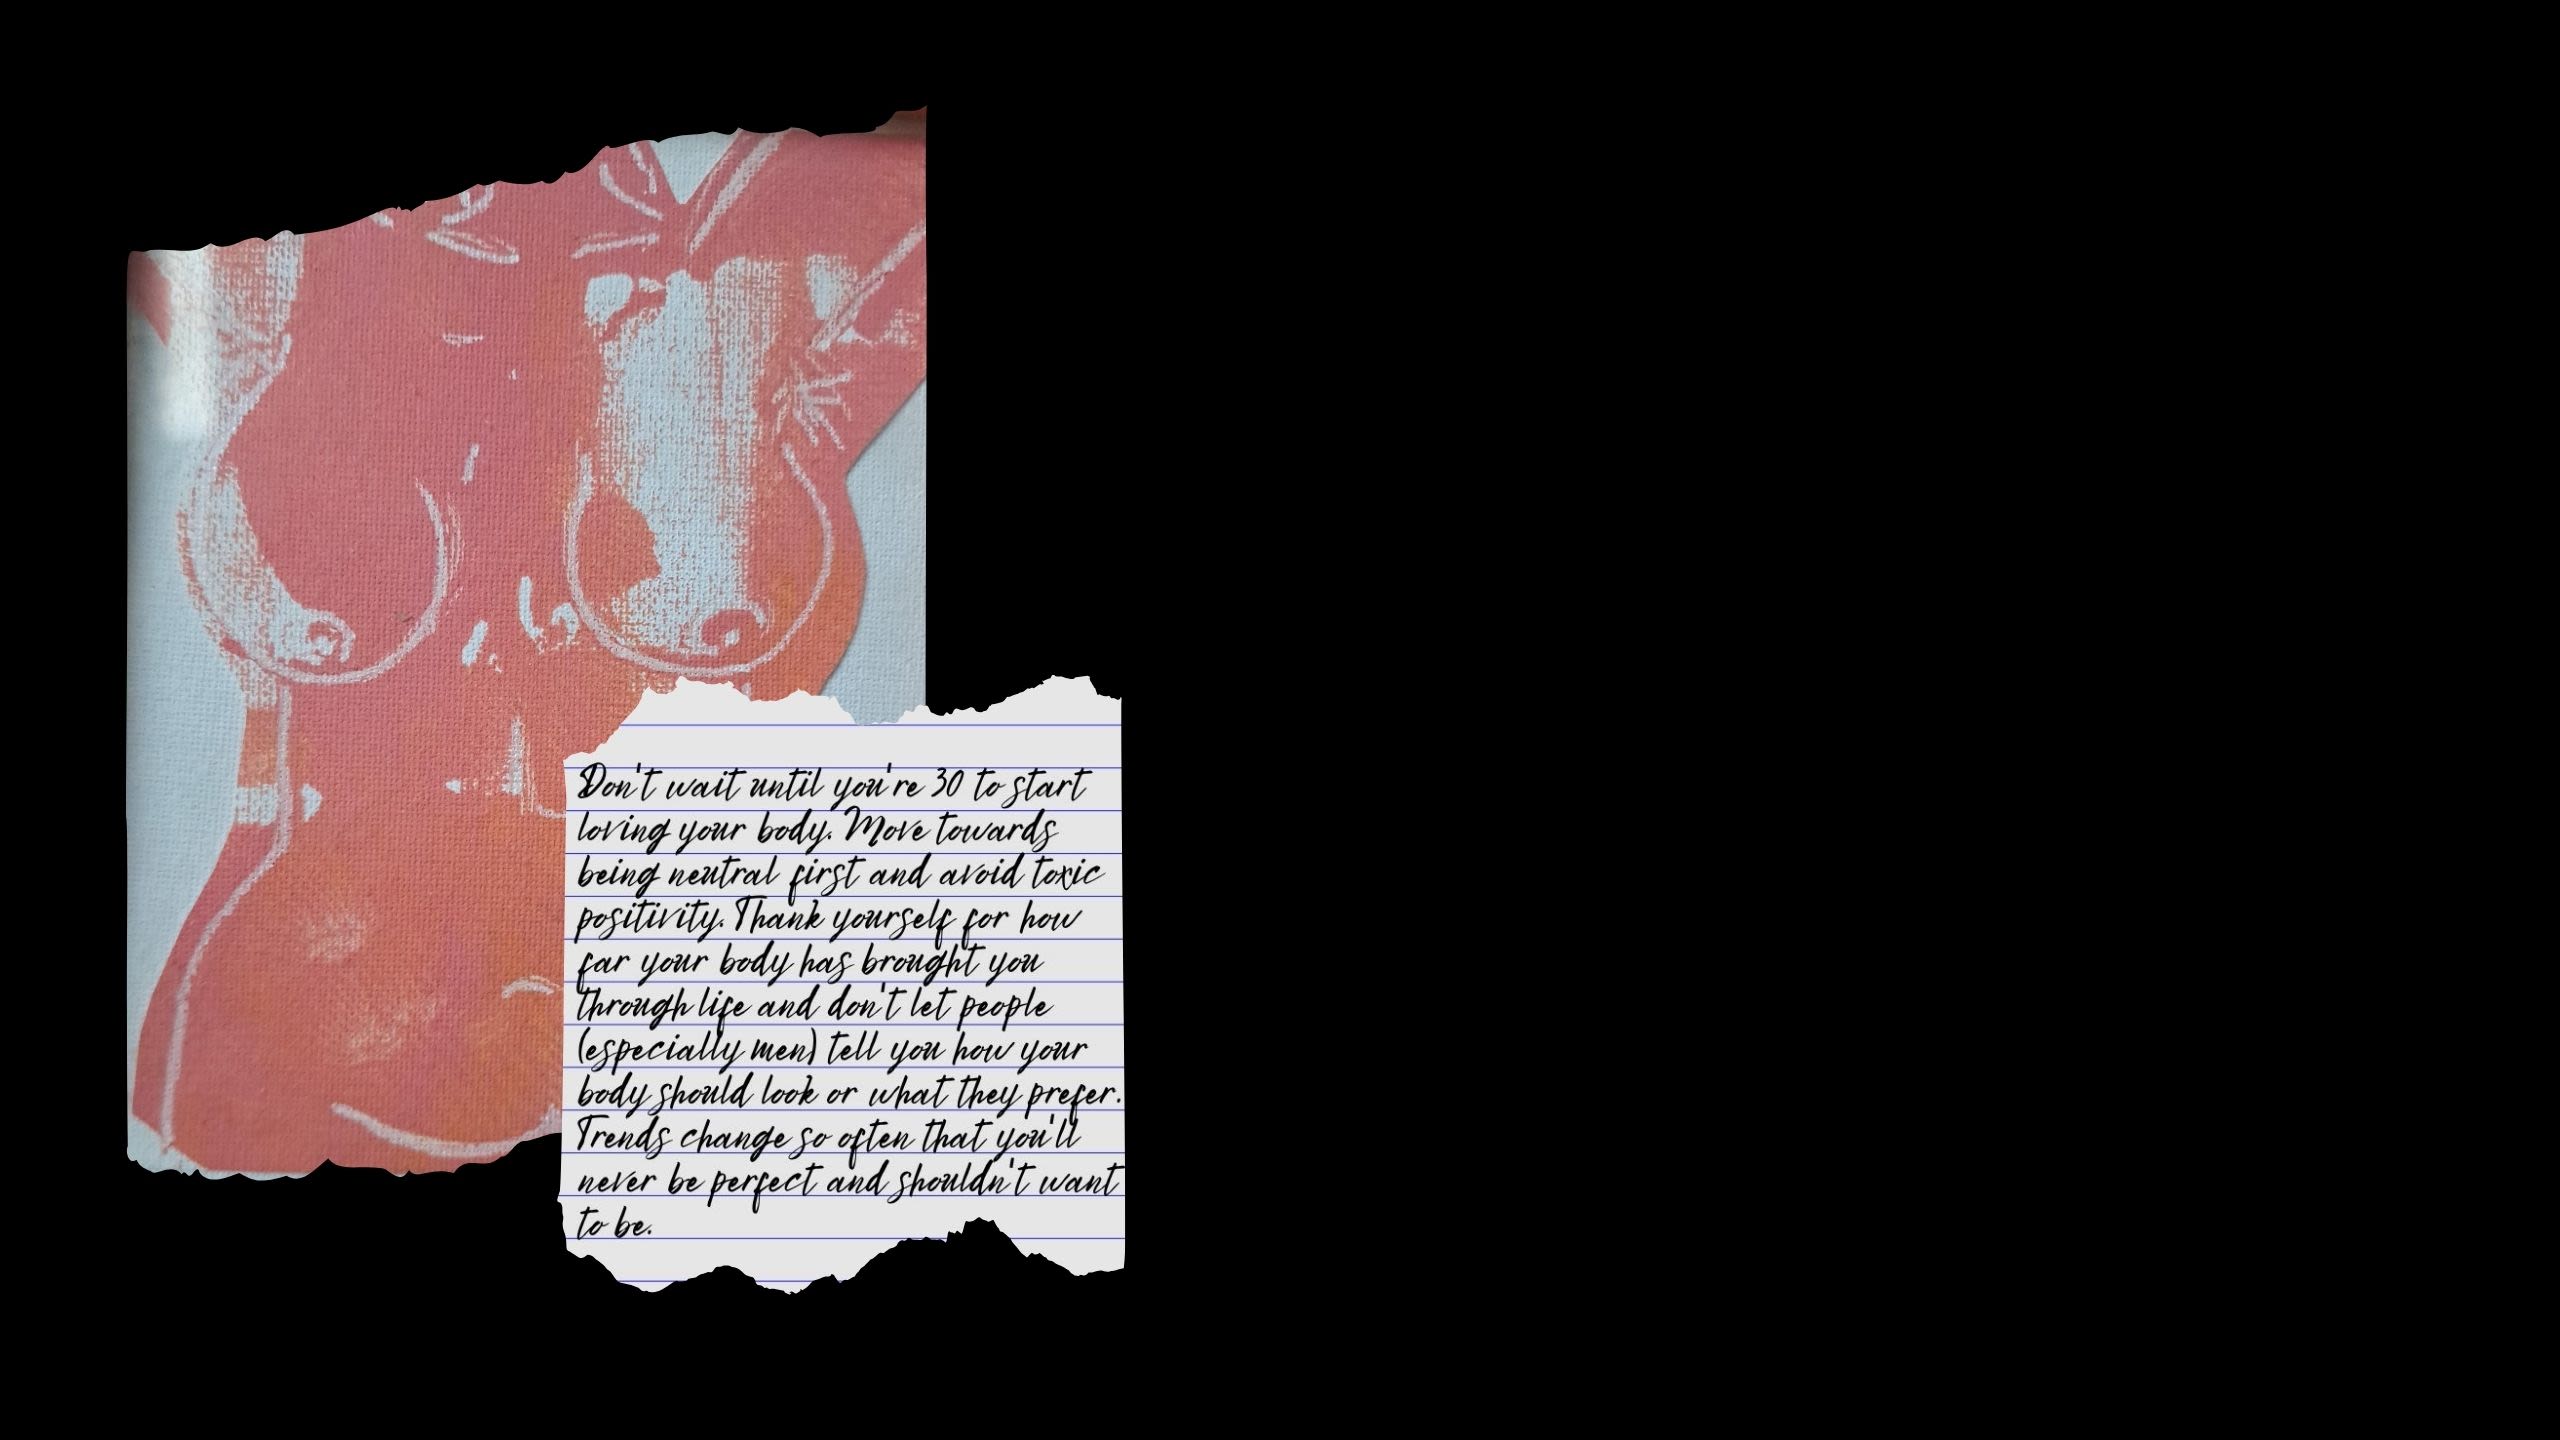 Don't wait until you're 30 to start
loving your body. Move towards
being neutral first and avoid toxic
positivity. Thank yourself for how
far your body has brought you
through life and don't let people
(especially men) tell you how your
body should look or what they prefer.
Trends change so often that you'll
never be perfect and shouldn't want
to be.